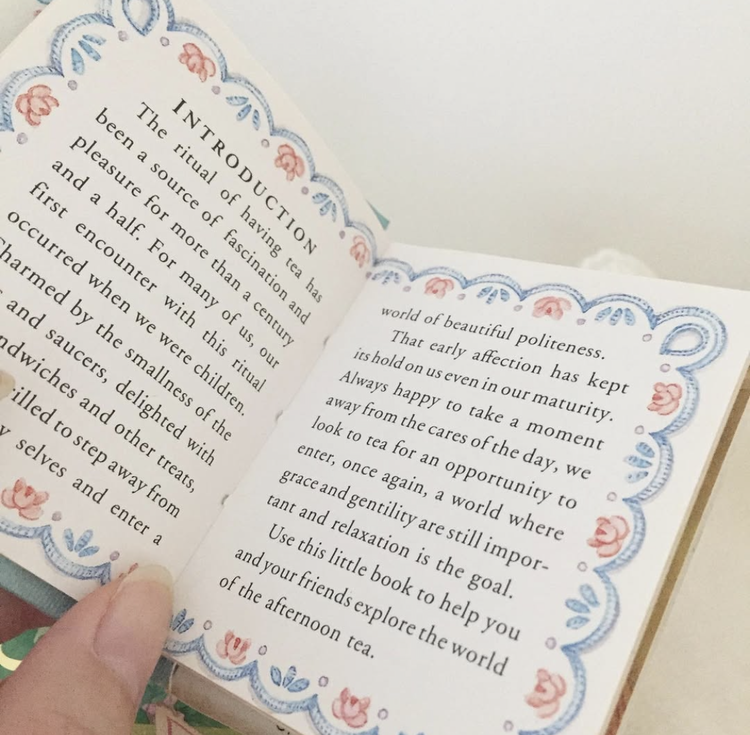 INTRODUCTION
The ritual of having tea has
been a source of fascination and
pleasure for more than a century
and a half. For many of us, our
first encounter with this ritual
occurred when we were children.
by the smallness of the
and saucers, delighted with
and other treats,
to step away from
selves and enter a
world of beautiful politeness.
That early affection has kept
its hold on us even in our maturity.
Always happy to take a moment
away from the cares of the day, we
look to tea for an opportunity to
enter, once again, a world where
grace and gentility are still impor-
tant and relaxation is the goal.
Use this little book to help you
and your friends explore the world
of the afternoon tea.